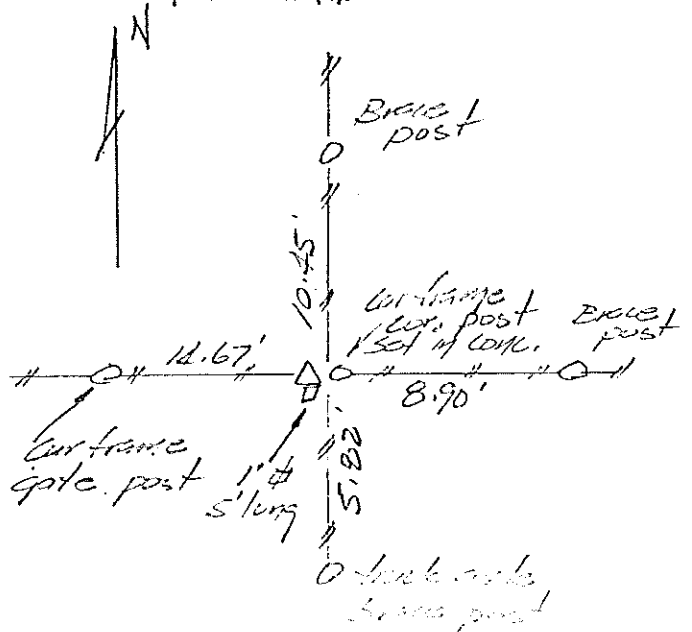 N
Brace
post
10.45'
Car frame
cor. post
set in conc.
Brace
post
14.67'
8.90'
Car frame
gate post
1" ⌀
5' long
5.82'
truck axle
brace post